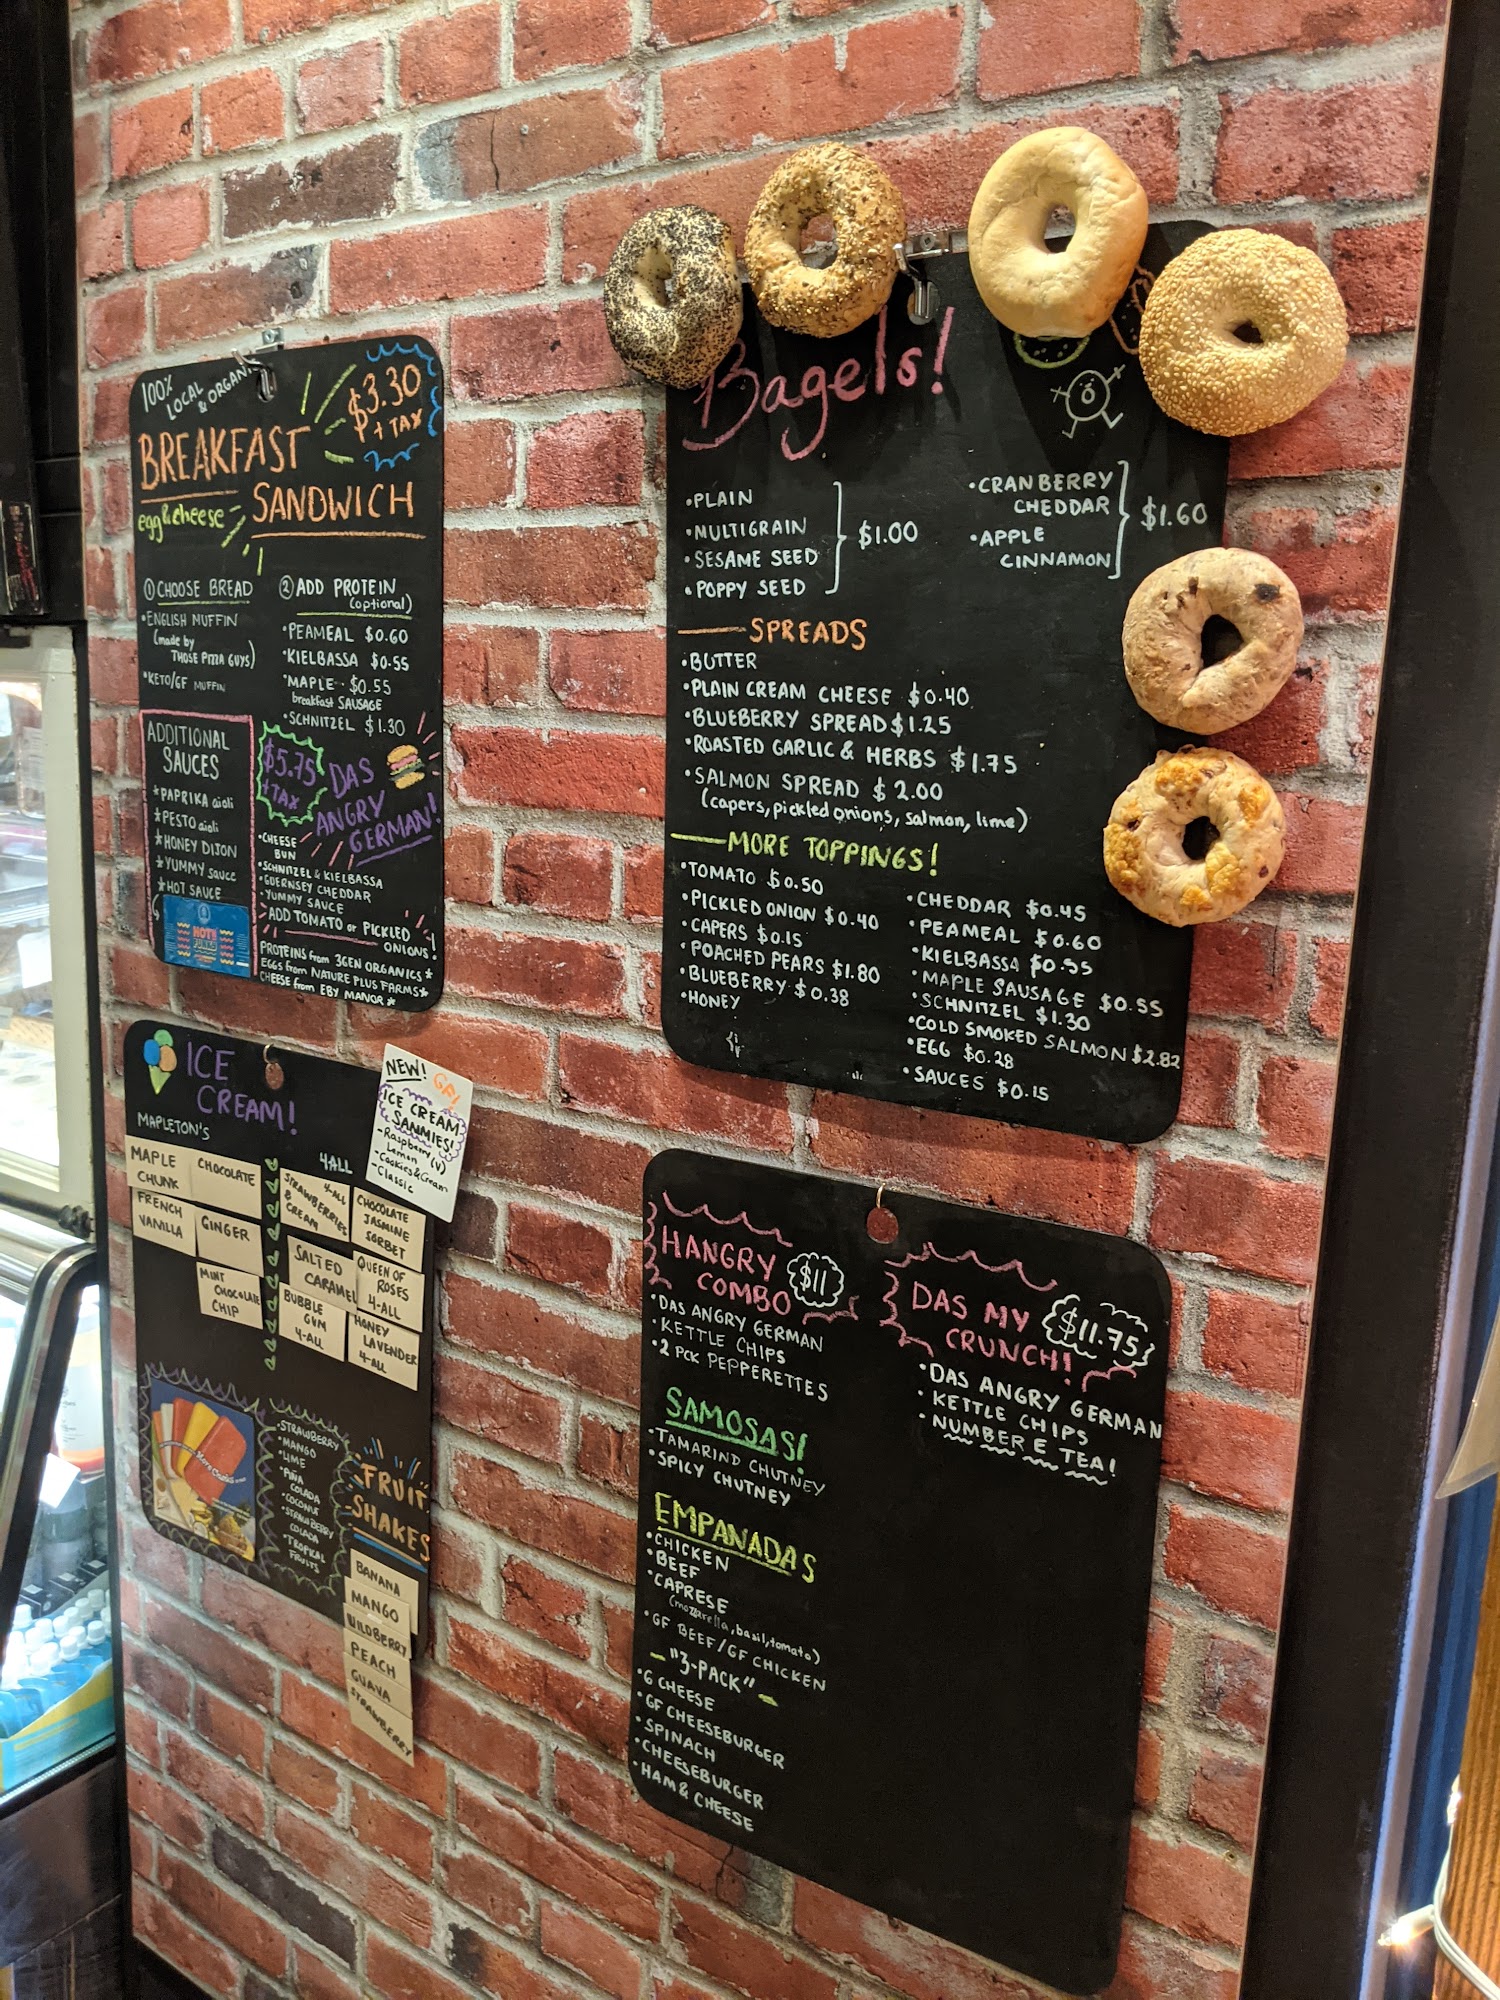 100%
LOCAL
& ORGANIC
$3.30
+ TAX
BREAKFAST
SANDWICH
egg & cheese
① CHOOSE BREAD
• ENGLISH MUFFIN
(made by
THOSE PIZZA GUYS)
• KETO/GF MUFFIN
② ADD PROTEIN
(optional)
• PEAMEAL $0.60
• KIELBASSA $0.55
• MAPLE $0.55
breakfast SAUSAGE
• SCHNITZEL $1.30
ADDITIONAL
SAUCES
* PAPRIKA aioli
* PESTO aioli
* HONEY DIJON
* YUMMY sauce
* HOT SAUCE
$5.75
+ TAX
DAS
ANGRY
GERMAN!
• CHEESE
BUN
• SCHNITZEL & KIELBASSA
• GUERNSEY CHEDDAR
• YUMMY SAUCE
ADD TOMATO or PICKLED
ONIONS!
PROTEINS from 3GEN ORGANICS *
EGGS from NATURE PLUS FARMS *
CHEESE from EBY MANOR *
Bagels!
• PLAIN
• MULTIGRAIN
• SESAME SEED
• POPPY SEED
$1.00
• CRANBERRY
CHEDDAR
• APPLE
CINNAMON
$1.60
SPREADS
• BUTTER
• PLAIN CREAM CHEESE $0.40
• BLUEBERRY SPREAD $1.25
• ROASTED GARLIC & HERBS $1.75
• SALMON SPREAD $2.00
(capers, pickled onions, salmon, lime)
MORE TOPPINGS!
• TOMATO $0.50
• PICKLED ONION $0.40
• CAPERS $0.15
• POACHED PEARS $1.80
• BLUEBERRY $0.38
• HONEY
• CHEDDAR $0.45
• PEAMEAL $0.60
• KIELBASSA $0.55
• MAPLE SAUSAGE $0.55
• SCHNITZEL $1.30
• COLD SMOKED SALMON $2.82
• EGG $0.28
• SAUCES $0.15
ICE
CREAM!
MAPLETON'S
MAPLE
CHUNK
CHOCOLATE
FRENCH
VANILLA
GINGER
MINT
CHOCOLATE
CHIP
4ALL
4-ALL
STRAWBERRIES
&
CREAM
CHOCOLATE
JASMINE
SORBET
SALTED
CARAMEL
QUEEN OF
ROSES
4-ALL
BUBBLE
GUM
4-ALL
HONEY
LAVENDER
4-ALL
NEW!
ICE CREAM
SAMMIES!
- Raspberry (v)
Lemon
- Cookies & Cream
- Classic
• STRAWBERRY
• MANGO
• LIME
COLADA
• COCONUT
• STRAWBERRY
COLADA
• TROPICAL
FRUITS
FRUIT
SHAKES
BANANA
MANGO
WILDBERRY
PEACH
GUAVA
STRAWBERRY
HANGRY
COMBO
$11
• DAS ANGRY GERMAN
• KETTLE CHIPS
• 2 PCK PEPPERETTES
DAS MY
CRUNCH!
$11.75
• DAS ANGRY GERMAN
• KETTLE CHIPS
• NUMBER E TEA!
SAMOSAS!
• TAMARIND CHUTNEY
• SPICY CHUTNEY
EMPANADAS
• CHICKEN
• BEEF
• CAPRESE
(mozzarella, basil, tomato)
• GF BEEF/GF CHICKEN
- "3-PACK" -
• 6 CHEESE
• GF CHEESEBURGER
• SPINACH
• CHEESEBURGER
• HAM & CHEESE